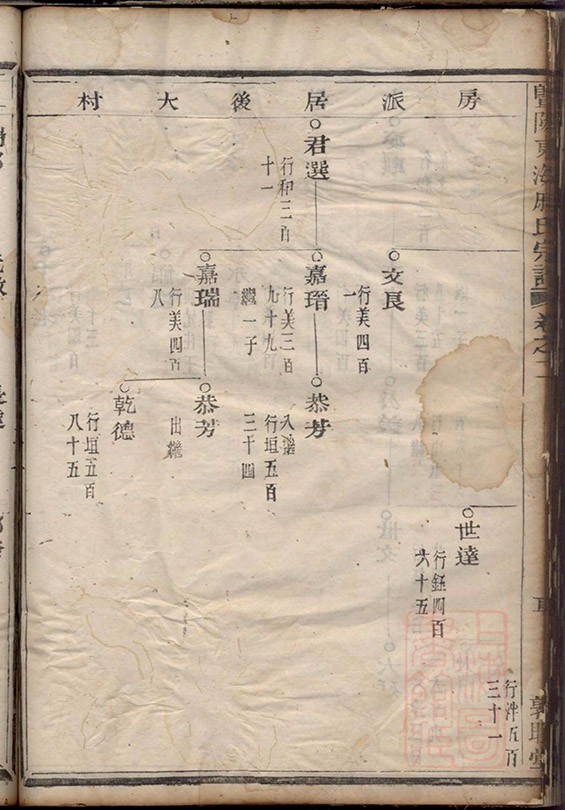 暨陽東海
氏宗譜 卷之二
房派居後大村
行洋五百
三十一
世達
行鈺四百
六十五
文良
行美四百
一
君選
行和三百
十一
嘉瑨
行美三百
九十九
繼一子
恭芳
入繼
行垣五百
三十四
嘉瑞
行美四百
八
恭芳
出繼
乾德
行垣五百
八十五